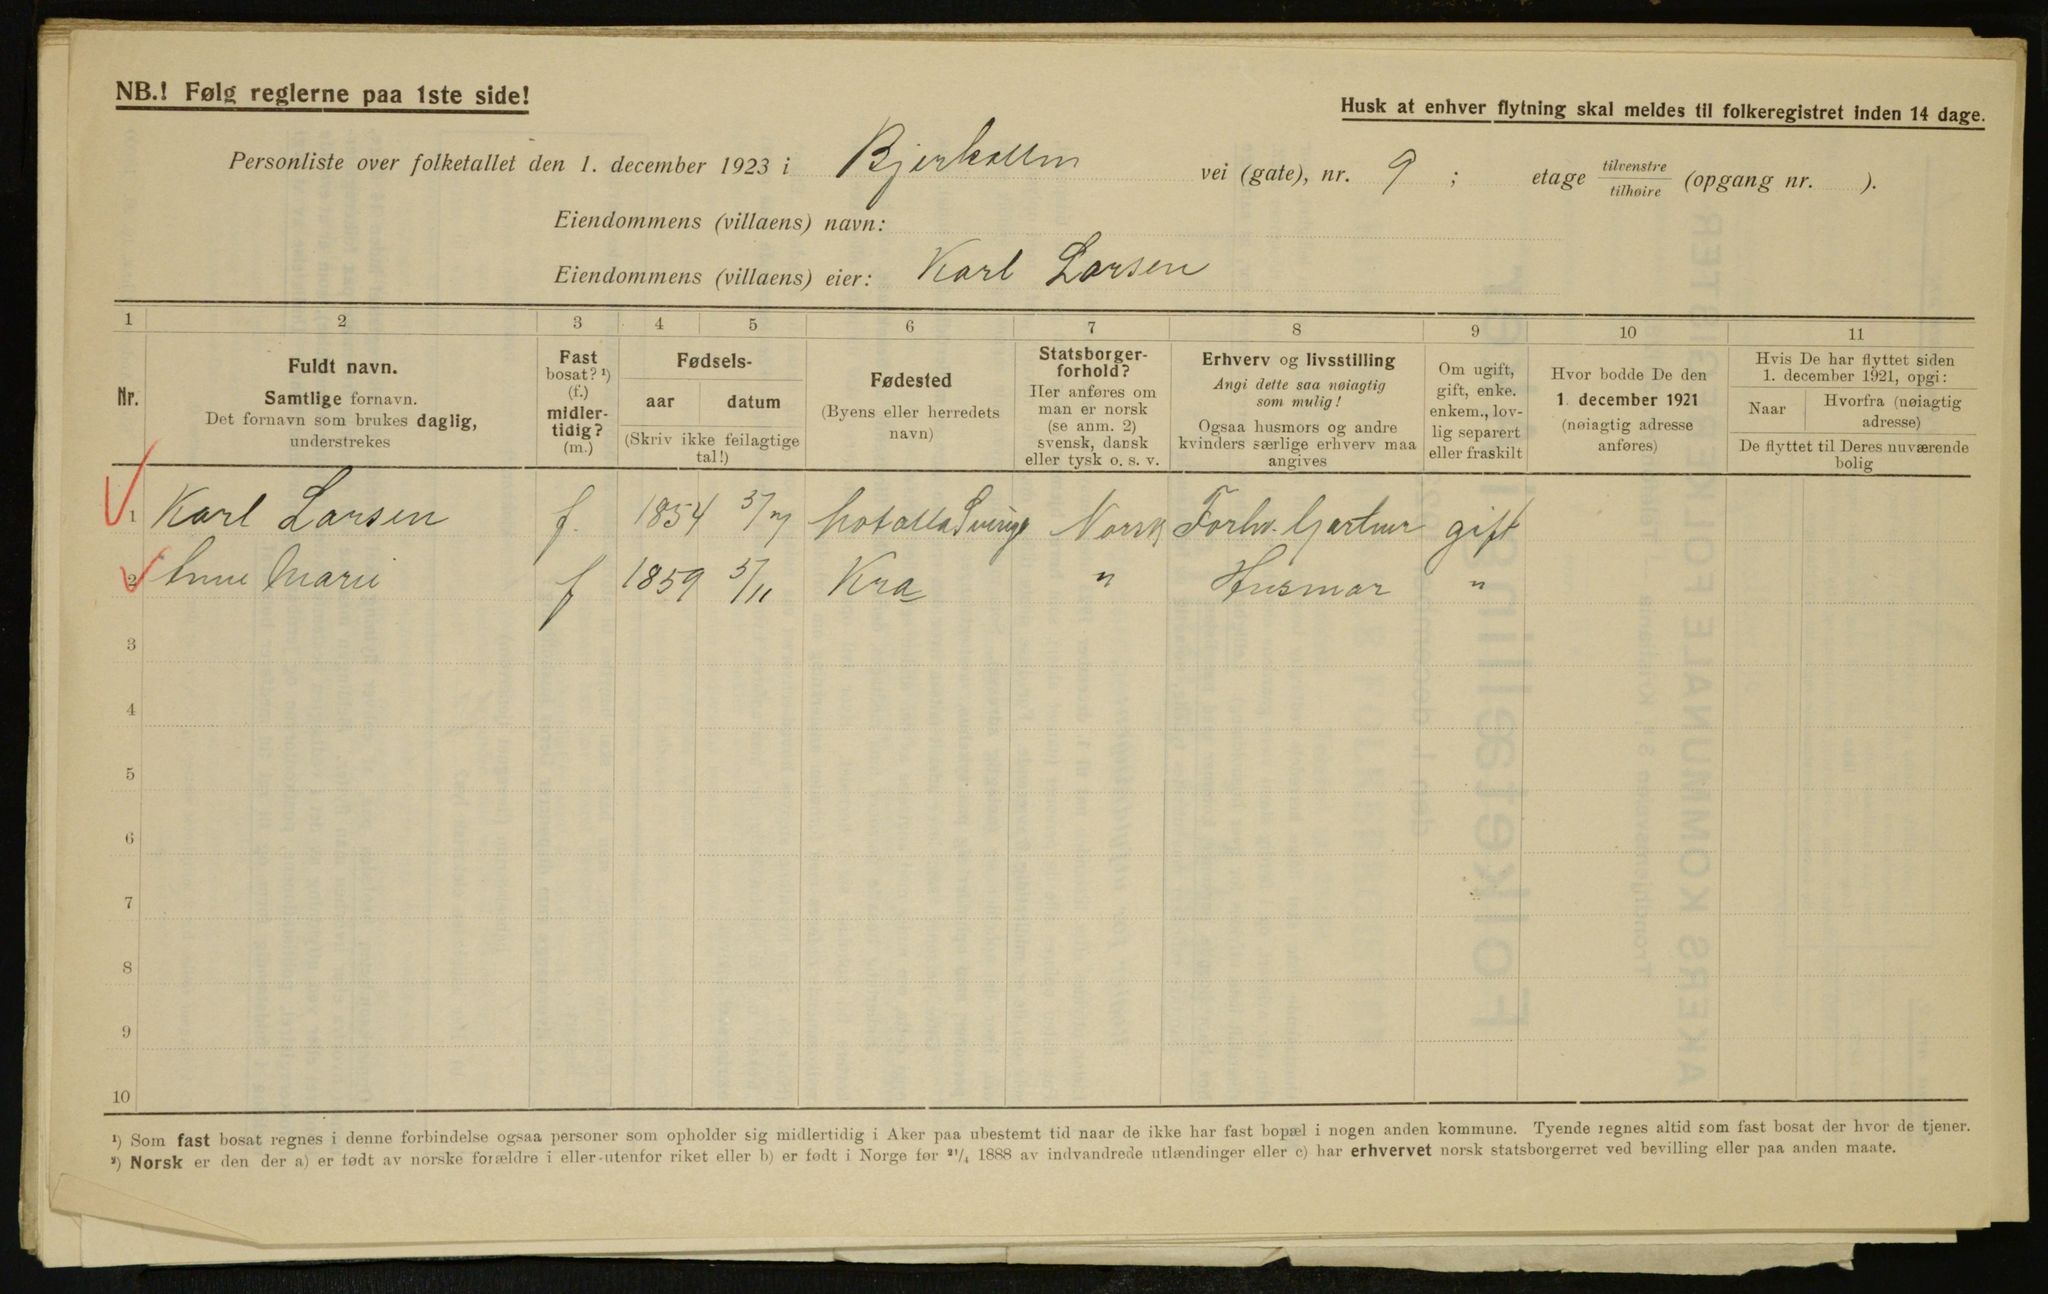 NB.! Følg reglerne paa 1ste side!
Husk at enhver flytning skal meldes til folkeregistret inden 14 dage.
Personliste over folketallet den 1. december 1923 i Bjerkealleen vei (gate), nr. 9 ; etage tilvenstre tilhøire (opgang nr. ).
Eiendommens (villaens) navn:
Eiendommens (villaens) eier: Karl Larsen
1 2 3 4 5 6 7 8 9 10 11
Nr.
Fuldt navn.
Samtlige fornavn.
Det fornavn som brukes daglig,
understrekes
Fast
bosat? ¹)
(f.)
midler-
tidig?
(m.)
Fødsels-
aar datum
(Skriv ikke feilagtige
tal!)
Fødested
(Byens eller herredets
navn)
Statsborger-
forhold?
Her anføres om
man er norsk
(se anm. 2)
svensk, dansk
eller tysk o. s. v.
Erhverv og livsstilling
Angi dette saa nøiagtig
som mulig!
Ogsaa husmors og andre
kvinders særlige erhverv maa
angives
Om ugift,
gift, enke.
enkem., lov-
lig separert
eller fraskilt
Hvor bodde De den
1 december 1921
(nøiagtig adresse
anføres)
Hvis De har flyttet siden
1. december 1921, opgi:
Naar
Hvorfra (nøiagtig
adresse)
De flyttet til Deres nuværende
bolig
1 Karl Larsen f. 1854 3/7 Motalla Sverige Norsk Forhv. Gartner gift
2 Anne Marie f 1859 3/11 Kra " Husmor "
3
4
5
6
7
8
9
10
¹) Som fast bosat regnes i denne forbindelse ogsaa personer som opholder sig midlertidig i Aker paa ubestemt tid naar de ikke har fast bopæl i nogen anden kommune. Tyende regnes altid som fast bosat der hvor de tjener.
²) Norsk er den der a) er født av norske forældre i eller utenfor riket eller b) er født i Norge før ²¹/₄ 1888 av indvandrede utlændinger eller c) har erhvervet norsk statsborgerret ved bevilling eller paa anden maate.